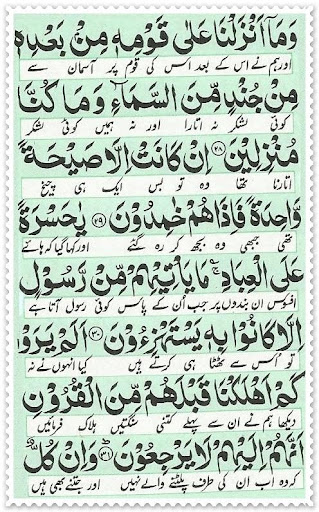 وَمَآ اَنْزَلْنَا عَلٰى قَوْمِهٖ مِنْۢ بَعْدِهٖ
اور ہم نے اس کے بعد اس کی قوم پر آسمان سے
مِنْ جُنْدٍ مِّنَ السَّمَآءِ وَمَا كُنَّا
کوئی لشکر نہ اتارا اور نہ ہمیں کوئی لشکر
مُنْزِلِيْنَ ﴿۲۸﴾ اِنْ كَانَتْ اِلَّا صَيْحَةً
اتارنا تھا وہ تو بس ایک ہی چیخ
وَّاحِدَةً فَاِذَا هُمْ خٰمِدُوْنَ ﴿۲۹﴾ يٰحَسْرَةً
تھی جبھی وہ بجھ کر رہ گئے اور کہا گیا کہ ہائے
عَلَى الْعِبَادِ ۚ مَا يَاْتِيْهِمْ مِّنْ رَّسُوْلٍ
افسوس ان بندوں پر جب ان کے پاس کوئی رسول آتا ہے
اِلَّا كَانُوْا بِهٖ يَسْتَهْزِءُوْنَ ﴿۳۰﴾ اَلَمْ يَرَوْا
تو اس سے ٹھٹھا ہی کرتے ہیں کیا انہوں نے نہ
كَمْ اَهْلَكْنَا قَبْلَهُمْ مِّنَ الْقُرُوْنِ
دیکھا ہم نے ان سے پہلے کتنی سنگتیں ہلاک فرمائیں
اَنَّهُمْ اِلَيْهِمْ لَا يَرْجِعُوْنَ ﴿۳۱﴾ وَاِنْ كُلٌّ
کہ وہ اب ان کی طرف پلٹنے والے نہیں اور جتنے بھی ہیں